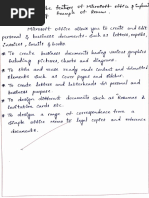 the features of Microsoft office &
example of Browser.
Microsoft office allow you to create and edit
personal & business documents, such as letters, reports,
invoices, emails & books
→ To create business documents having various graphics
including pictures, charts and diagrams.
→ To store and reuse ready made content and formatted
elements such as cover pages and sidebar.
→ To create letters and letterheads for personal and
business purpose.
→ To design different documents such as Resumes &
invitation cards etc.
→ To design a range of correspondence from a
simple office memo to legal copies and reference
documents.